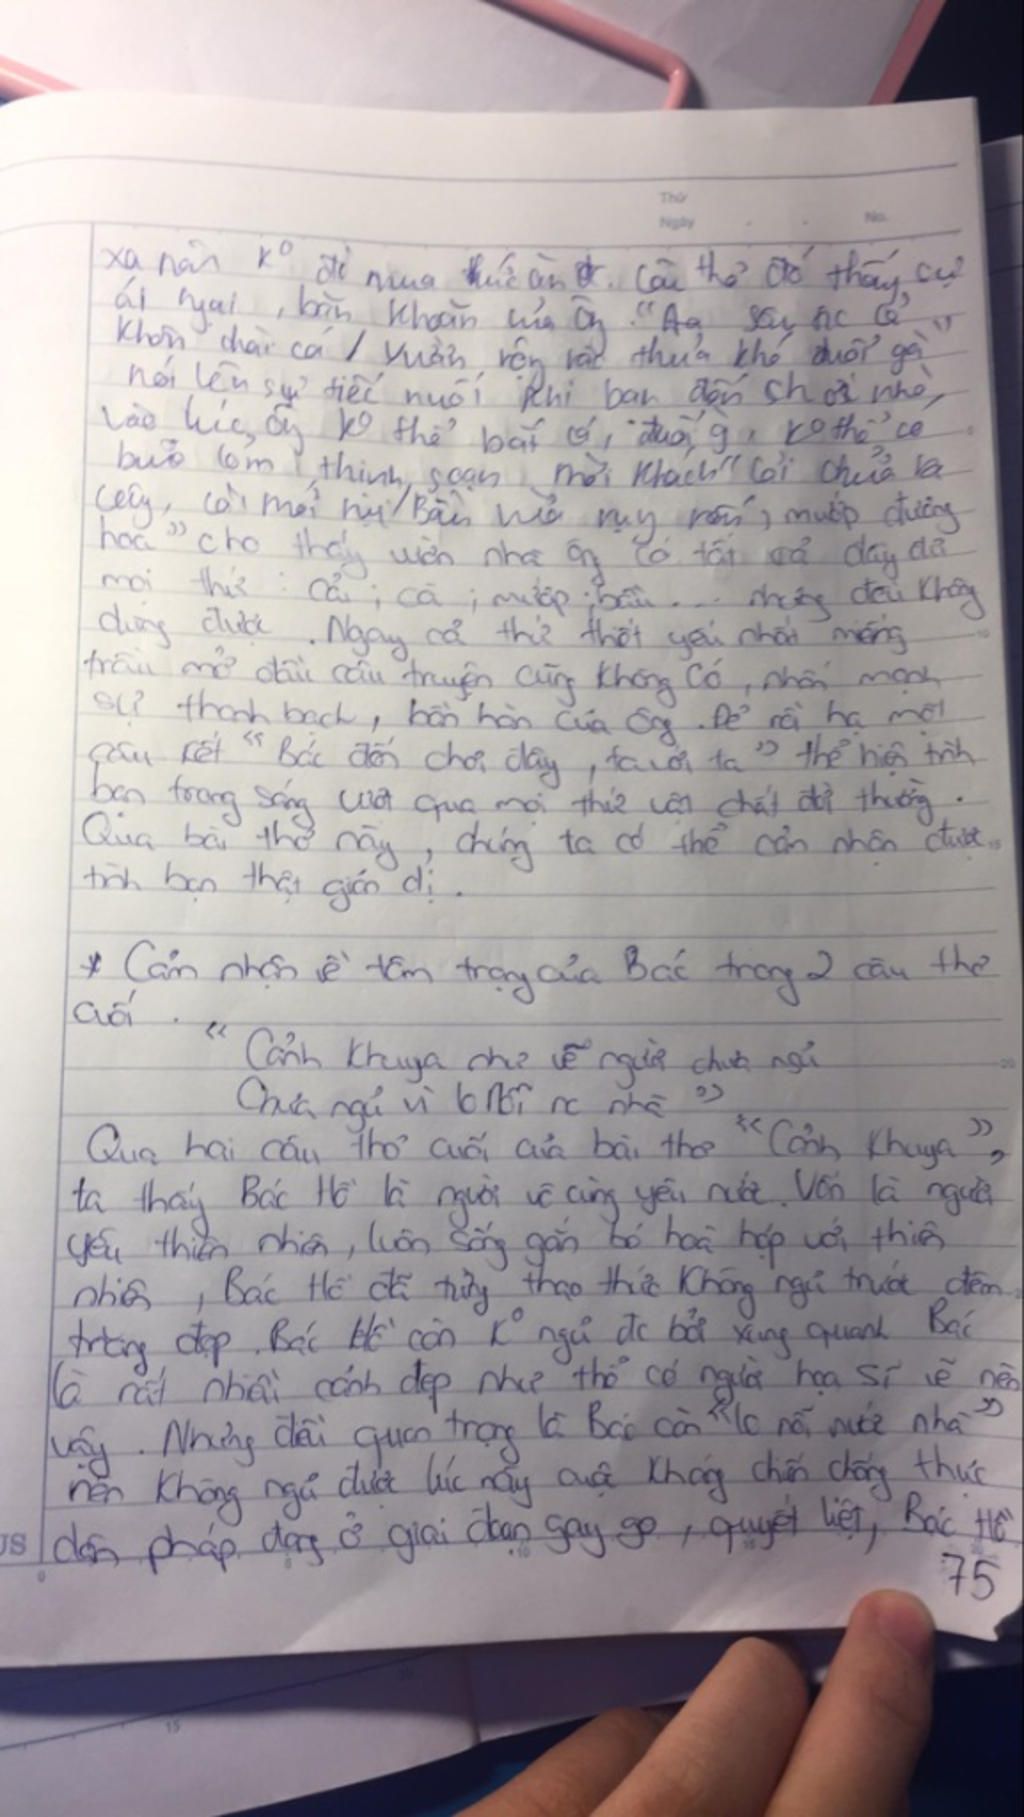 Thứ
Ngày No.
xa nên k° để mua thức ăn. Câu thơ đó thấy sự
ái ngại, băn khoăn của ôg. "Ao sâu nc cả
khôn chài cá / Vườn rộng rào thưa khó đuổi gà"
nói lên sự tiếc nuối khi bạn đến chơi nhà,
vào lúc, ôg k° thể bắt cá, đuổi g, k° thể có
buổi cơm thịnh soạn mời khách "Cải chửa ra
cây, cà mới nụ / Bầu vừa rụng rốn, mướp đương
hoa" cho thấy vườn nhà ôg có tất cả đầy đủ
mọi thứ : cải ; cà ; mướp ; bầu ... nhưng đều không
dùng được. Ngay cả thứ thiết yếu nhất miếng
trầu mở đầu câu truyện cũng không có, nhấn mạnh
sự thanh bạch, bần hàn của ông. Để rồi hạ một
câu kết "Bác đến chơi đây, ta với ta" thể hiện tình
bạn trong sáng vượt qua mọi thứ vật chất đời thường.
Qua bài thơ này, chúng ta có thể cảm nhận được
tình bạn thật giản dị.
* Cảm nhận về tâm trạng của Bác trong 2 câu thơ
cuối.
"Cảnh khuya như vẽ người chưa ngủ
Chưa ngủ vì lo nỗi nc nhà"
Qua hai câu thơ cuối của bài thơ "Cảnh khuya",
ta thấy Bác Hồ là người vô cùng yêu nước. Vốn là người
yêu thiên nhiên, luôn sống gắn bó hoà hợp với thiên
nhiên, Bác Hồ đã từng thao thức không ngủ trước đêm
trăng đẹp. Bác Hồ còn k° ngủ đc bởi xung quanh Bác
là rất nhiều cảnh đẹp như thể có người hoạ sĩ vẽ nên
vậy. Nhưng điều quan trọng là Bác còn "lo nỗi nước nhà"
nên không ngủ được lúc này cuộc kháng chiến chống thực
dân pháp đang ở giai đoạn gay go, quyết liệt, Bác Hồ
75